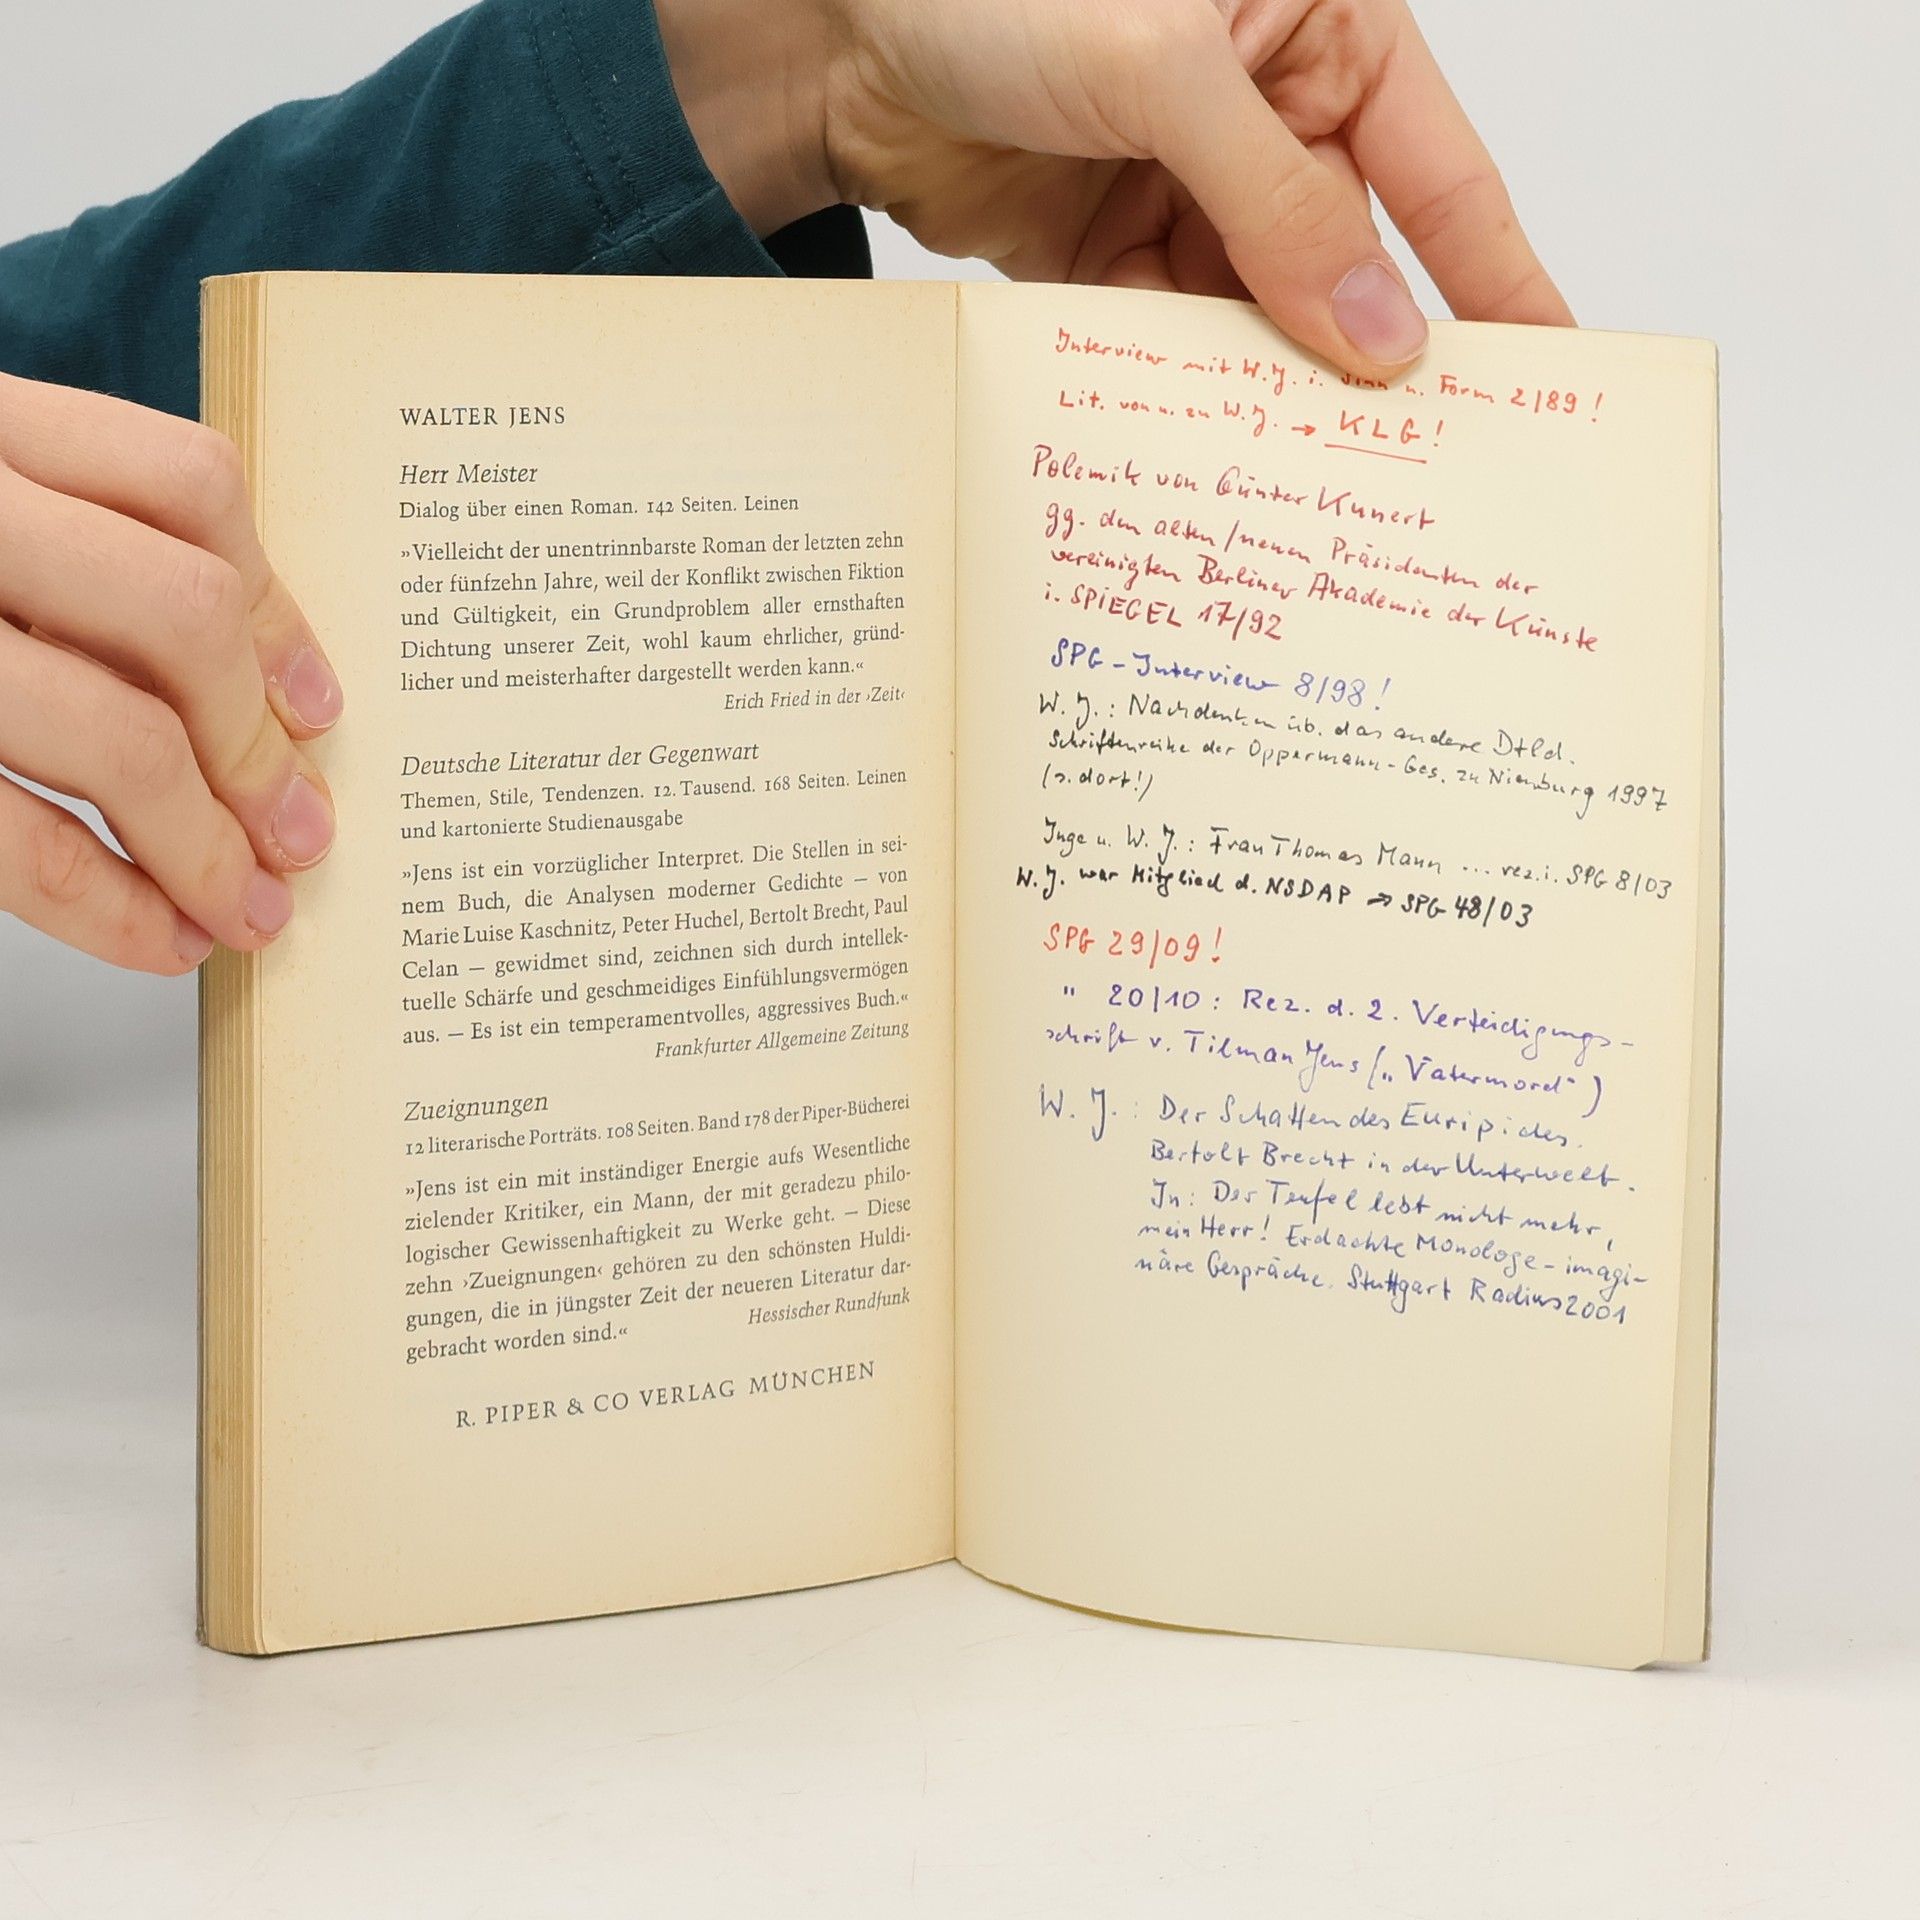 WALTER JENS
Herr Meister
Dialog über einen Roman. 142 Seiten. Leinen
»Vielleicht der unentrinnbarste Roman der letzten zehn
oder fünfzehn Jahre, weil der Konflikt zwischen Fiktion
und Gültigkeit, ein Grundproblem aller ernsthaften
Dichtung unserer Zeit, wohl kaum ehrlicher, gründ-
licher und meisterhafter dargestellt werden kann.«
Erich Fried in der ›Zeit‹
Deutsche Literatur der Gegenwart
Themen, Stile, Tendenzen. 12. Tausend. 168 Seiten. Leinen
und kartonierte Studienausgabe
»Jens ist ein vorzüglicher Interpret. Die Stellen in sei-
nem Buch, die Analysen moderner Gedichte — von
Marie Luise Kaschnitz, Peter Huchel, Bertolt Brecht, Paul
Celan — gewidmet sind, zeichnen sich durch intellek-
tuelle Schärfe und geschmeidiges Einfühlungsvermögen
aus. — Es ist ein temperamentvolles, aggressives Buch.«
Frankfurter Allgemeine Zeitung
Zueignungen
12 literarische Porträts. 108 Seiten. Band 178 der Piper-Bücherei
»Jens ist ein mit inständiger Energie aufs Wesentliche
zielender Kritiker, ein Mann, der mit geradezu philo-
logischer Gewissenhaftigkeit zu Werke geht. — Diese
zehn ›Zueignungen‹ gehören zu den schönsten Huldi-
gungen, die in jüngster Zeit der neueren Literatur dar-
gebracht worden sind.« Hessischer Rundfunk
R. PIPER & CO VERLAG MÜNCHEN
Interview mit W. J. i. Sinn u. Form 2/89 !
Lit. von u. zu W. J. → KLG !
Polemik von Günter Kunert
gg. den alten/neuen Präsidenten der
vereinigten Berliner Akademie der Künste
i. SPIEGEL 17/92
SPG - Interview 8/98 !
W. J. : Nachdenken üb. das andere Dtld.
Schriftenreihe der Oppermann-Ges. zu Nienburg 1997
(s. dort!)
Inge u. W. J. : Frau Thomas Mann ... rez. i. SPG 8/03
W. J. war Mitglied d. NSDAP → SPG 48/03
SPG 29/09 !
" 20/10 : Rez. d. 2. Verteidigungs-
schrift v. Tilman Jens („Vatermord“)
W. J. : Der Schatten des Euripides.
Bertolt Brecht in der Unterwelt.
In: Der Teufel lebt nicht mehr,
mein Herr! Erdachte Monologe - imagi-
näre Gespräche. Stuttgart Radius 2001